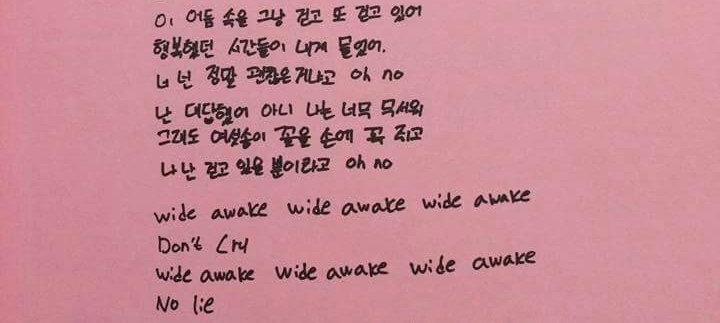 이 어둠 속을 그냥 걷고 또 걷고 있어
행복했던 시간들이 내게 물었어.
너 넌 정말 괜찮은거냐고 Oh no
난 대답했어 아니 나는 너무 무서워
그래도 여섯송이 꽃을 손에 꼭 쥐고
나 난 걷고 있을 뿐이라고 Oh no
wide awake wide awake wide awake
Don't Cry
wide awake wide awake wide awake
No lie